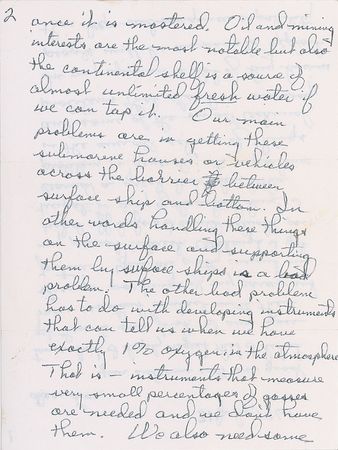 2
once it is mastered. Oil and mining
interests are the most notable but also
the continental shelf is a source of
almost unlimited fresh water if
we can tap it. Our main
problems are in getting these
submarine houses or vehicles
across the barrier between
surface ship and bottom. In
other words handling these things
on the surface and supporting
them by surface ships is a bad
problem. The other bad problem
has to do with developing instruments
that can tell us when we have
exactly 1% oxygen in the atmosphere
That is - instruments that measure
very small percentages of gasses
are needed and we don't have
them. We also need some